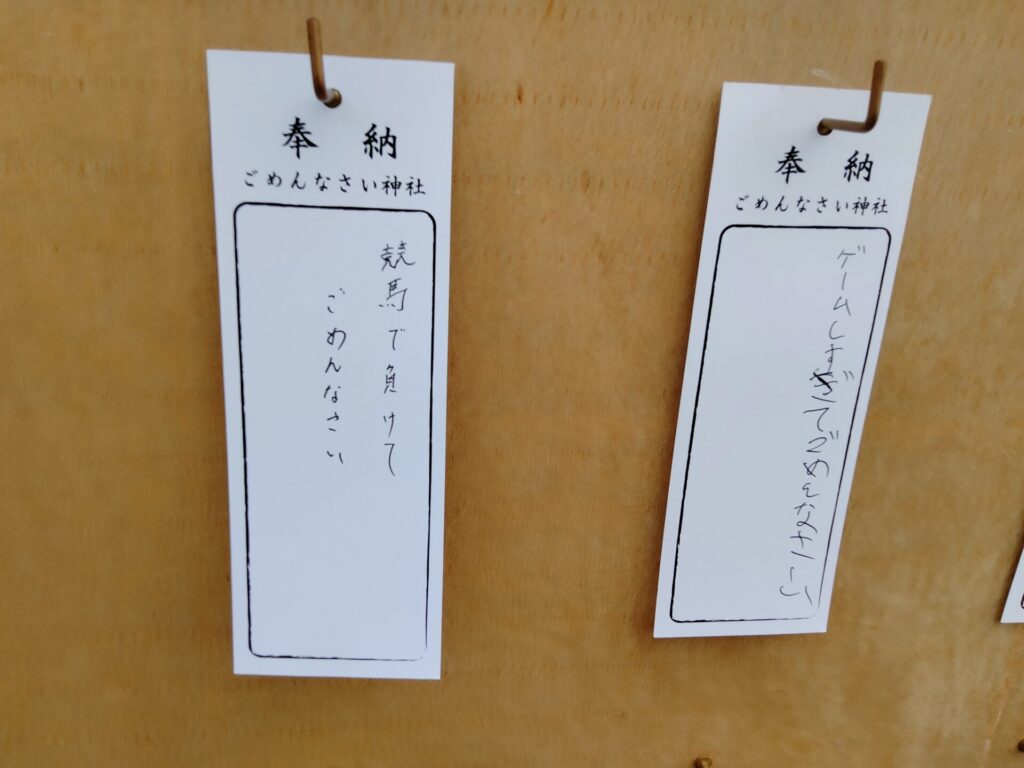 奉納
ごめんなさい神社
競馬で負けて
ごめんなさい
奉納
ごめんなさい神社
ゲームしすぎてごめんなさい